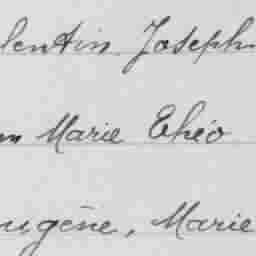 lentin Joseph
m Marie Théo
ugène, Marie